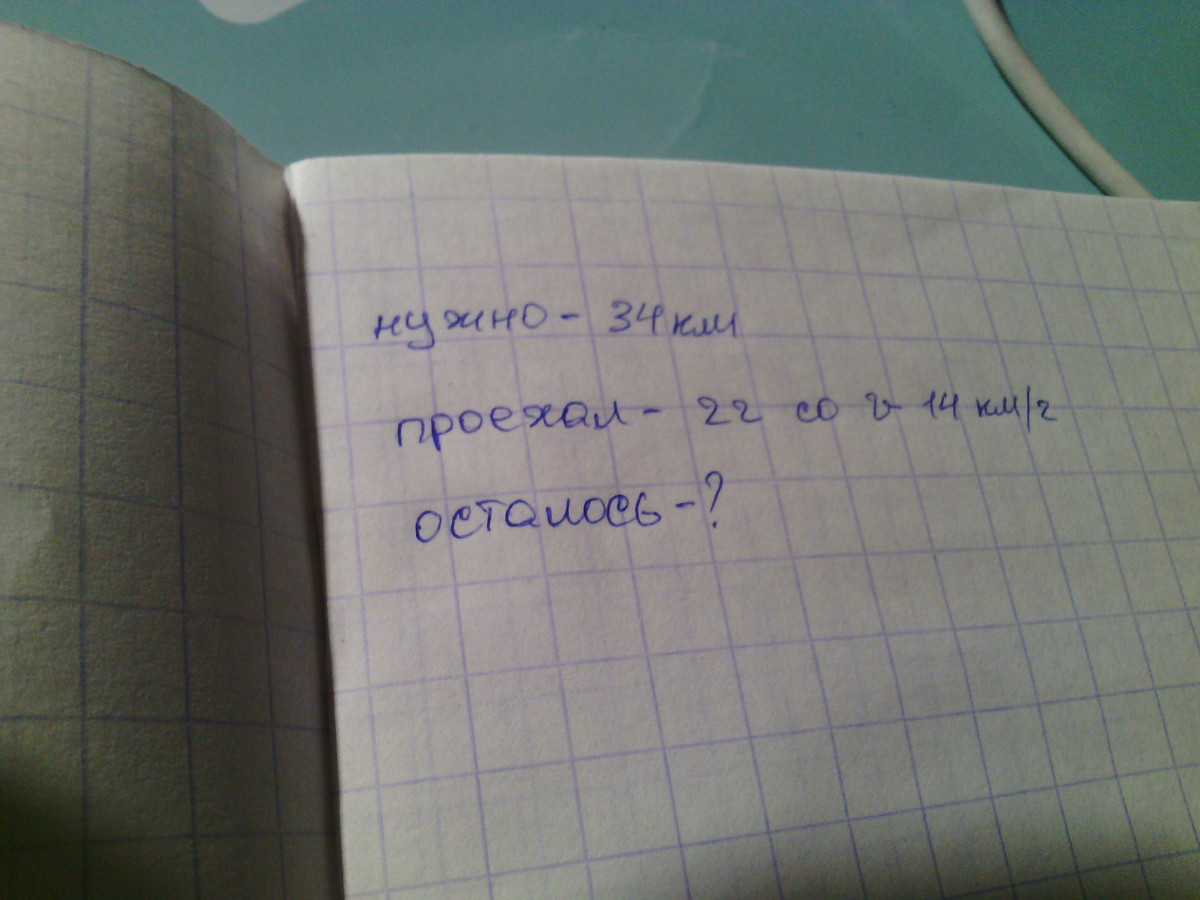 нужно - 34 км
проехал - 2ч со v 14 км/ч
осталось - ?